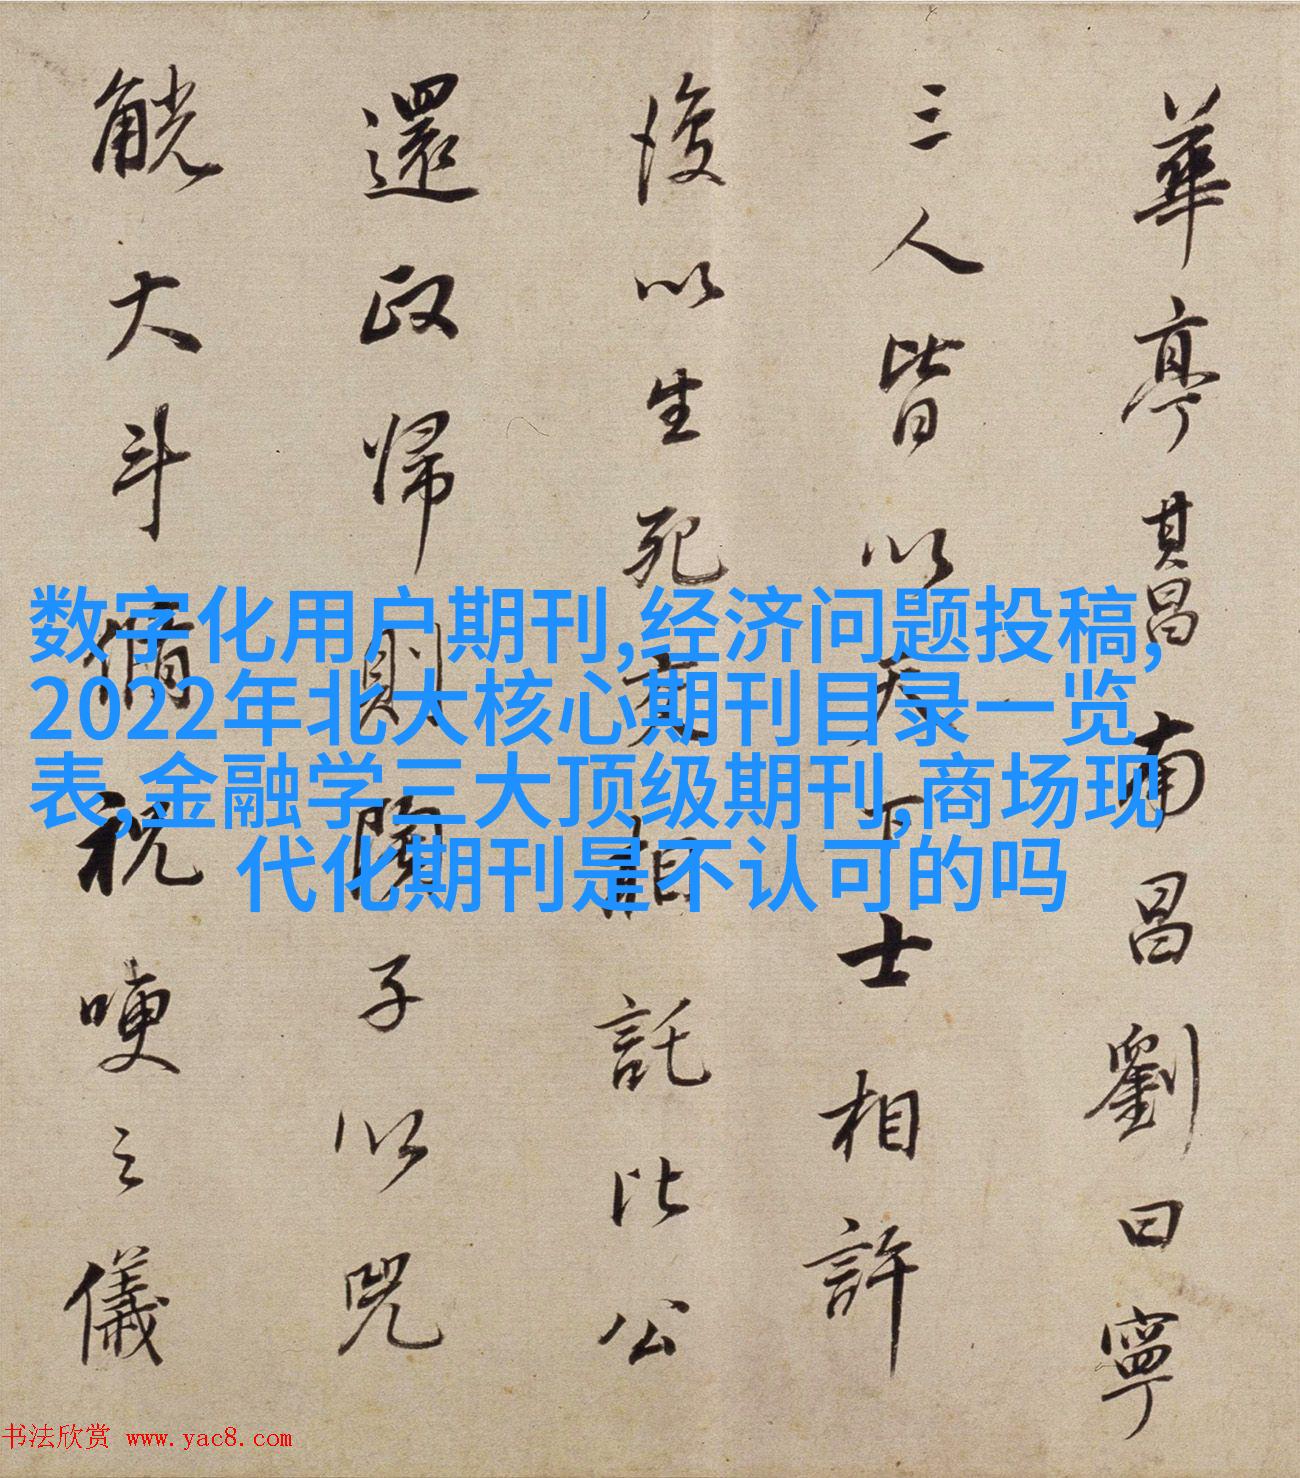 華亭其昌南昌劉曰寧
三人皆以天下士相許
後以生死交相託比公
還政歸則陶子以兕
觥大斗脩祝哽之儀
数字化用户期刊,经济问题投稿,
2022年北大核心期刊目录一览
表,金融学三大顶级期刊,商场现
代化期刊是不认可的吗
书法欣赏 www.yac8.com